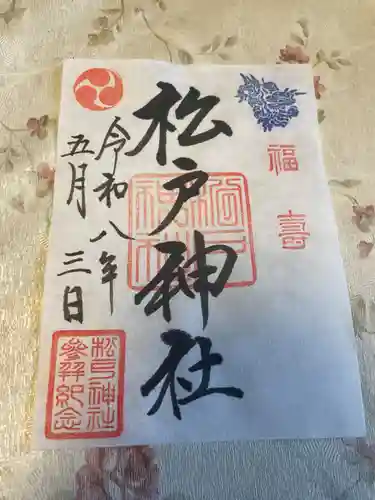 福壽
松戸神社
松戸神社
令和八年
五月三日
松戸神社
參拜紀念